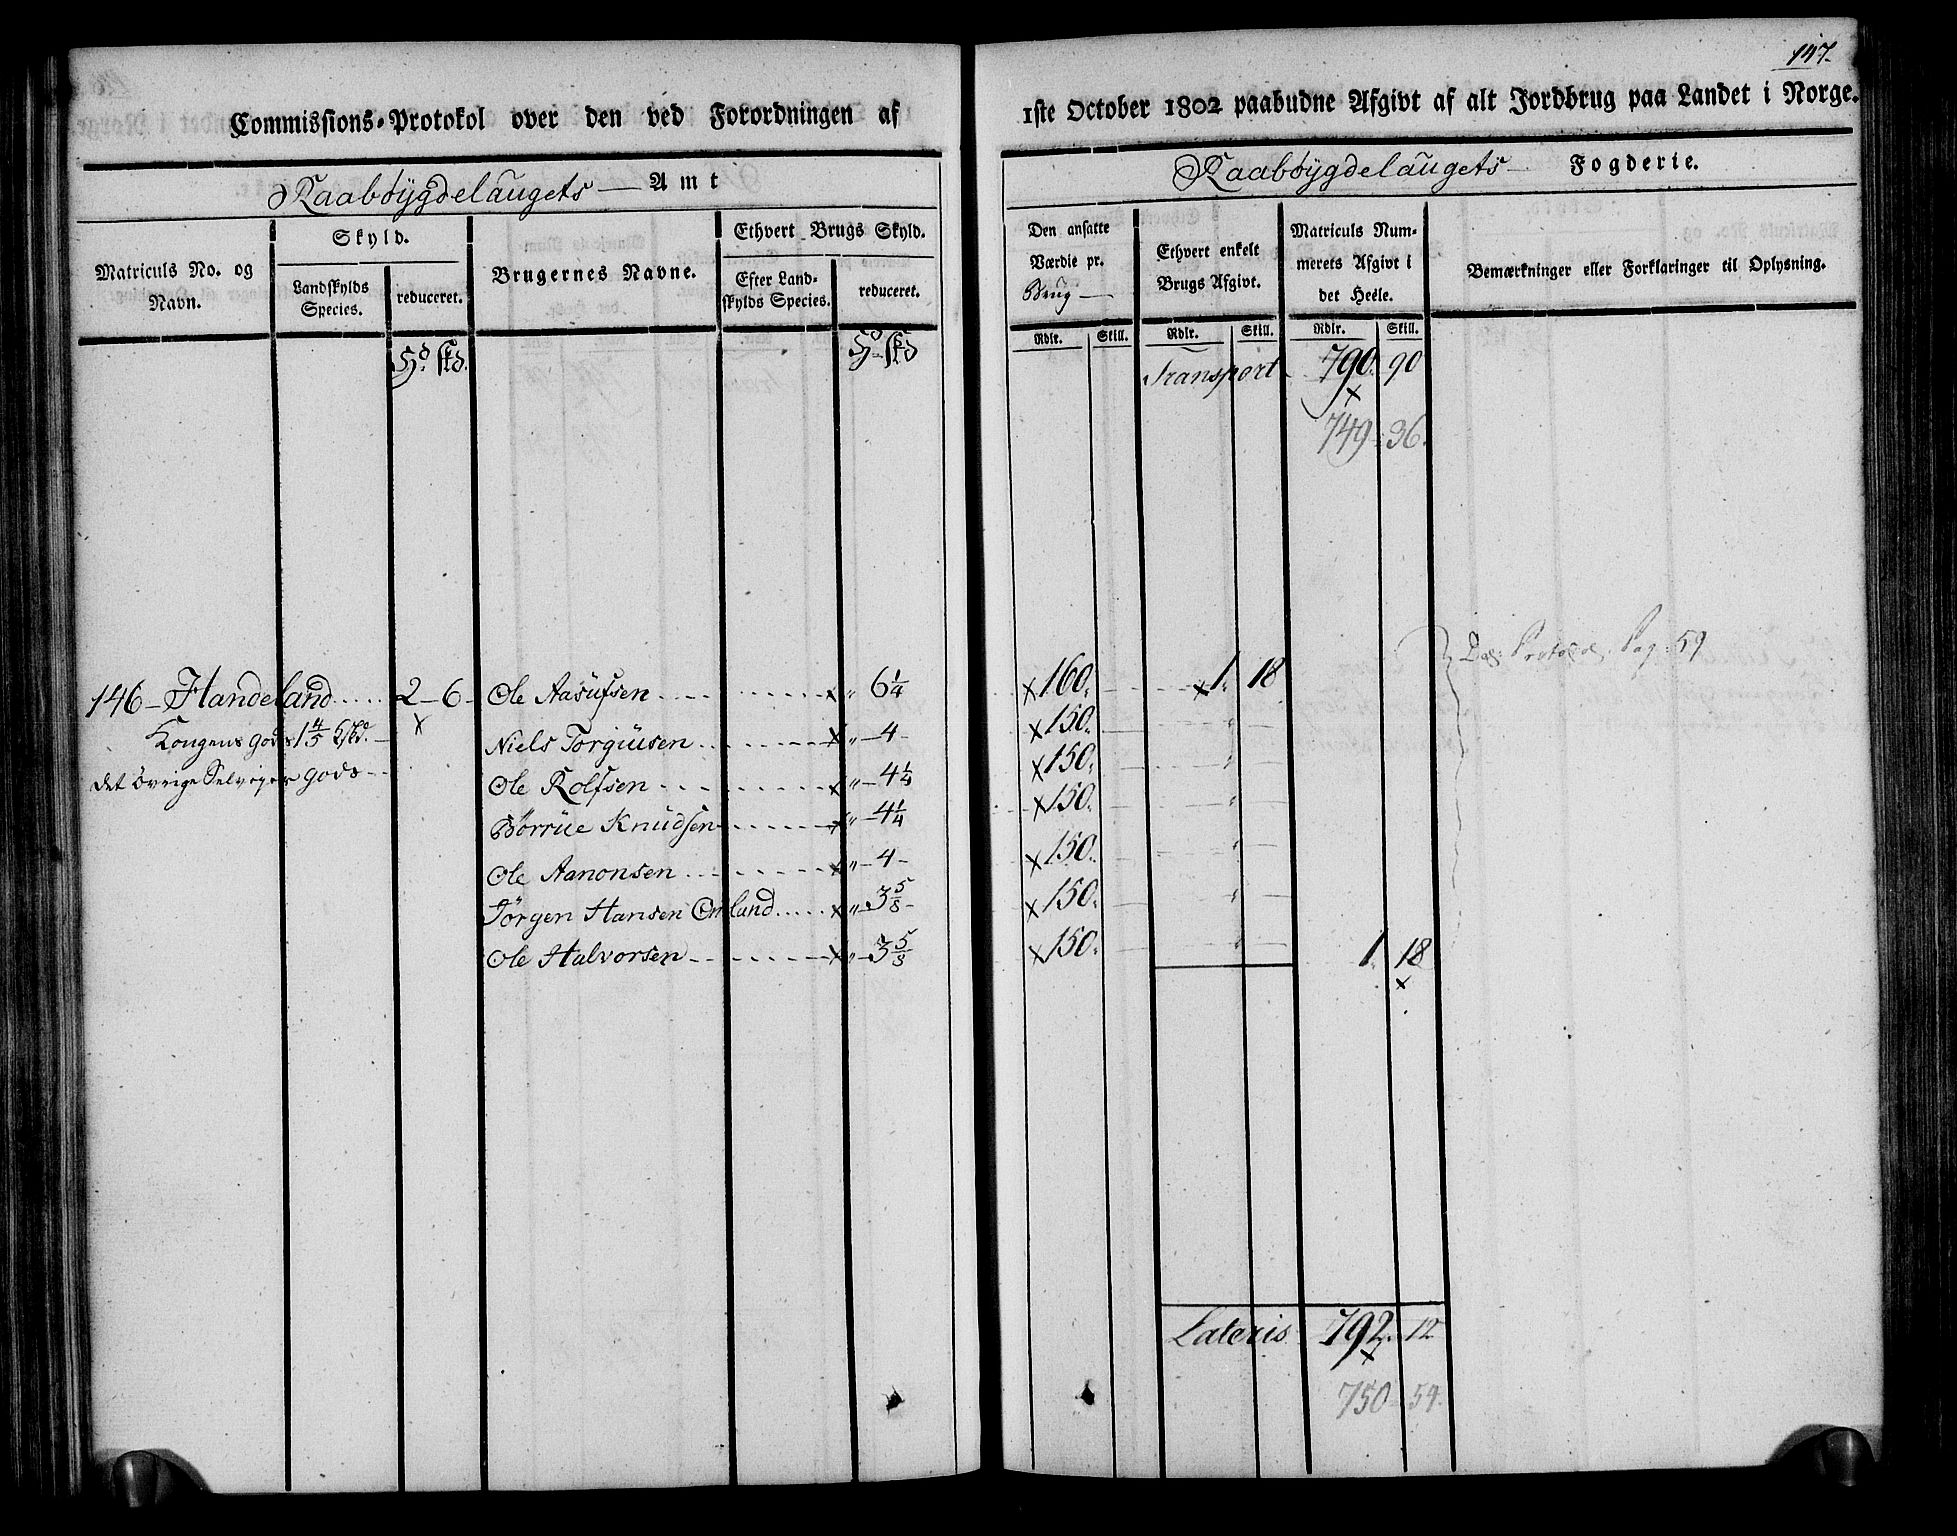 147.
Commissions-Protokol over den ved Forordningen af 1ste October 1802 paabudne Afgivt af alt Jordbrug paa Landet i Norge.
Raabøygdelaugets Amt
Raabøygdelaugets Fogderie.
Matriculs No. og Navn.
Skyld.
Landskylds Species.
reduceret.
Brugernes Navne.
Ethvert Brugs Skyld.
Efter Landskylds Species.
reduceret.
Den ansatte Værdie pr. Brug
Ethvert enkelt Brugs Afgivt.
Matriculs Nummerets Afgivt i det Heele.
Bemærkninger eller Forklaringer til Oplysning.
Rdlr. Skill. Rdlr. Skill. Rdlr. Skill.
Hd. skd. Hd. skd
Transport 790. 90
749 : 36.
Pag: 59
146 - Handeland 2 - 6 - Ole Aasufsen x " 6 1/4 x 160. x 1. 18
Kongens gods 1 4/5 x Niels Torgiusen x " - 4 - x 150. "
det övrige Selveyer gods Ole Rolfsen x " - 4 1/4 x 150. "
Börrue Knudsen x " - 4 1/4 x 150. "
Ole Aanonsen x " - 4 - x 150. "
Jörgen Hansen x " - 3 5/8 - x 150. "
Ole Halvorsen x " - 3 5/8 x 150. " 1. 18
Lateris 792. 12
750 54.